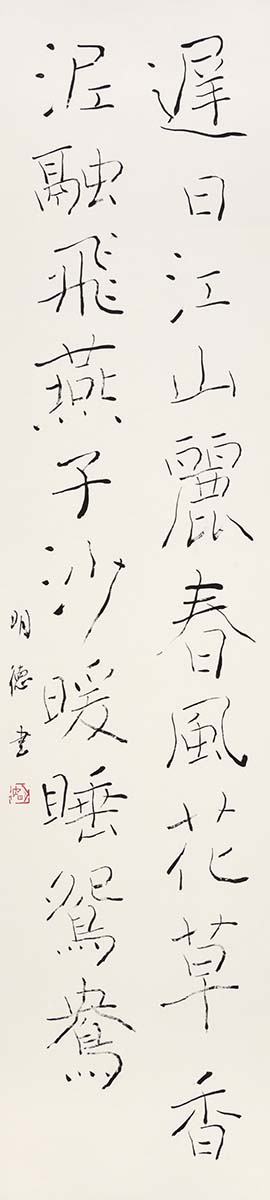 遲日江山麗春風花草香
泥融飛燕子沙暖睡鴛鴦
明德書